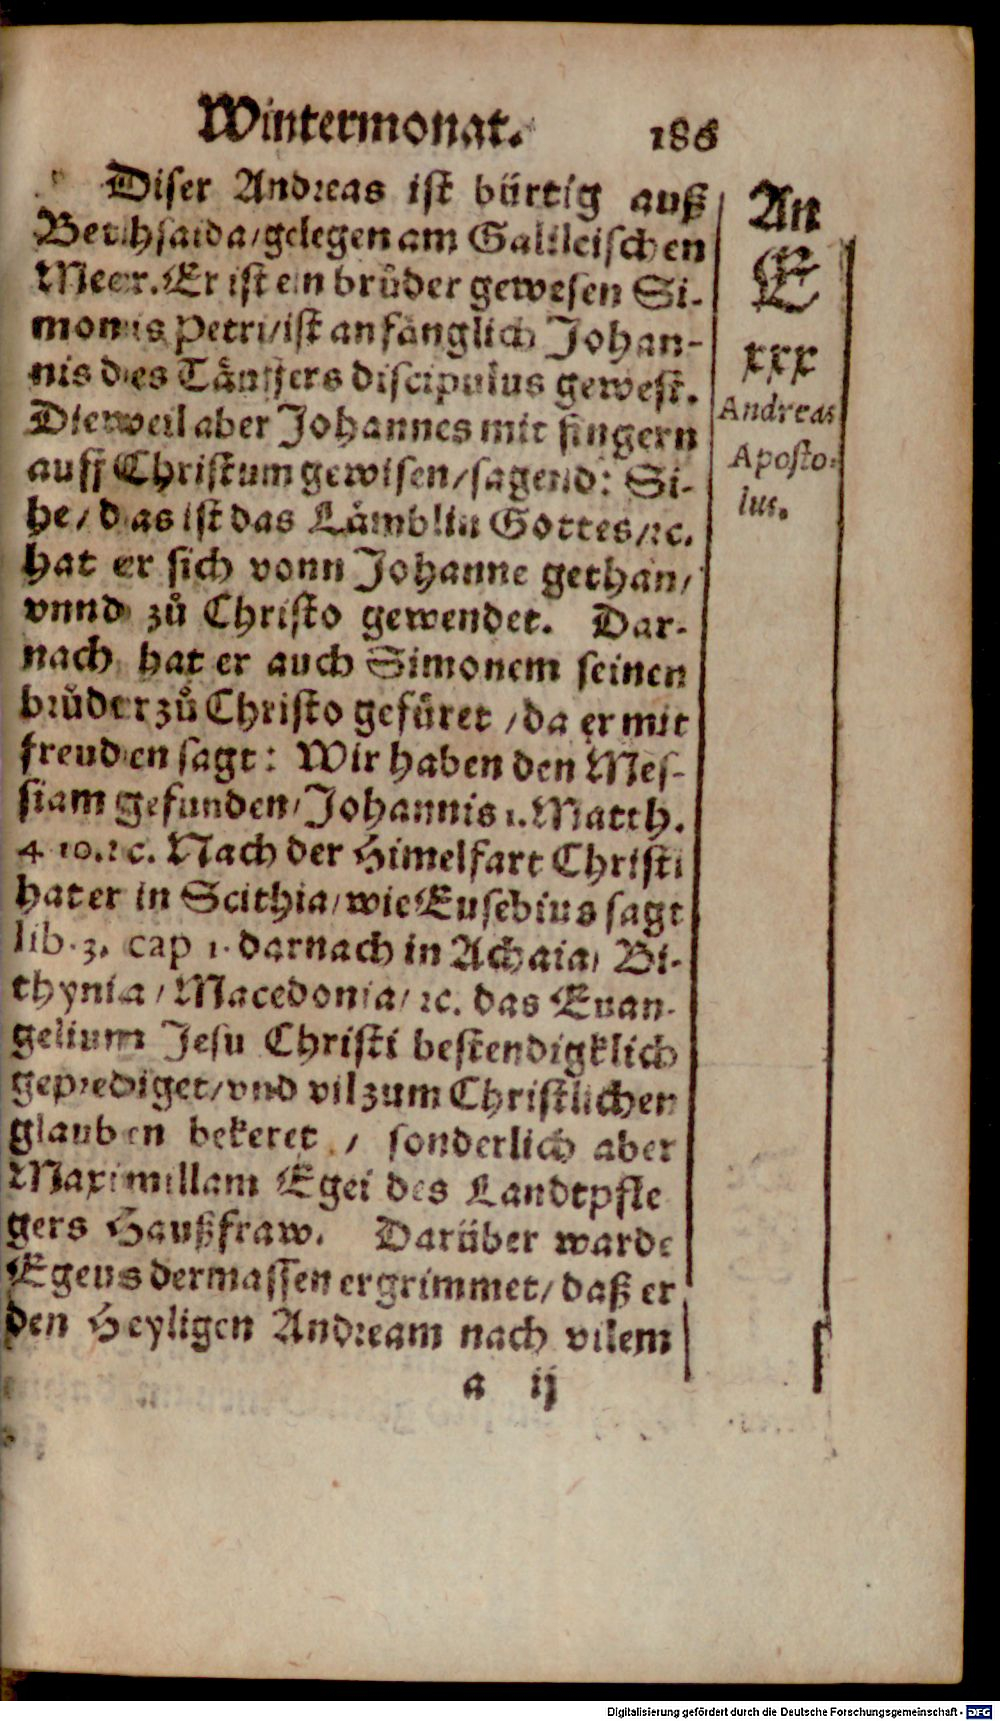 Wintermonat. 186
Diser Andreas ist bürtig auß
Bethsaida/gelegen am Galileischen
Meer. Er ist ein brůder gewesen Si-
monis Petri/ist anfänglich Johan-
nis des Täuffers discipulus gewest.
Dieweil aber Johannes mit fingern
auff Christum gewisen/sagend: Si-
he/das ist das Lämblin Gottes/ꝛc.
hat er sich vonn Johanne gethan/
vnnd zů Christo gewendet. Dar-
nach hat er auch Simonem seinen
brůder zů Christo gefüret/da er mit
freuden sagt: Wir haben den Mes-
siam gefunden/Johannis 1. Matth.
4 10.ꝛc. Nach der Himelfart Christi
hat er in Scithia/wie Eusebius sagt
lib. 3. cap 1. darnach in Achaia/Bi-
thynia/Macedonia/ꝛc. das Euan-
gelium Jesu Christi bestendigklich
geprediget/vnd vil zum Christlichen
glauben bekeret/sonderlich aber
Maximillam Egei des Landtpfle
gers Haußfraw. Darüber warde
Egeus dermassen ergrimmet/daß er
den Heyligen Andream nach vilem
a ij
An
E
xxx
Andreas
Aposto-
lus.
Digitalisierung gefördert durch die Deutsche Forschungsgemeinschaft - DFG